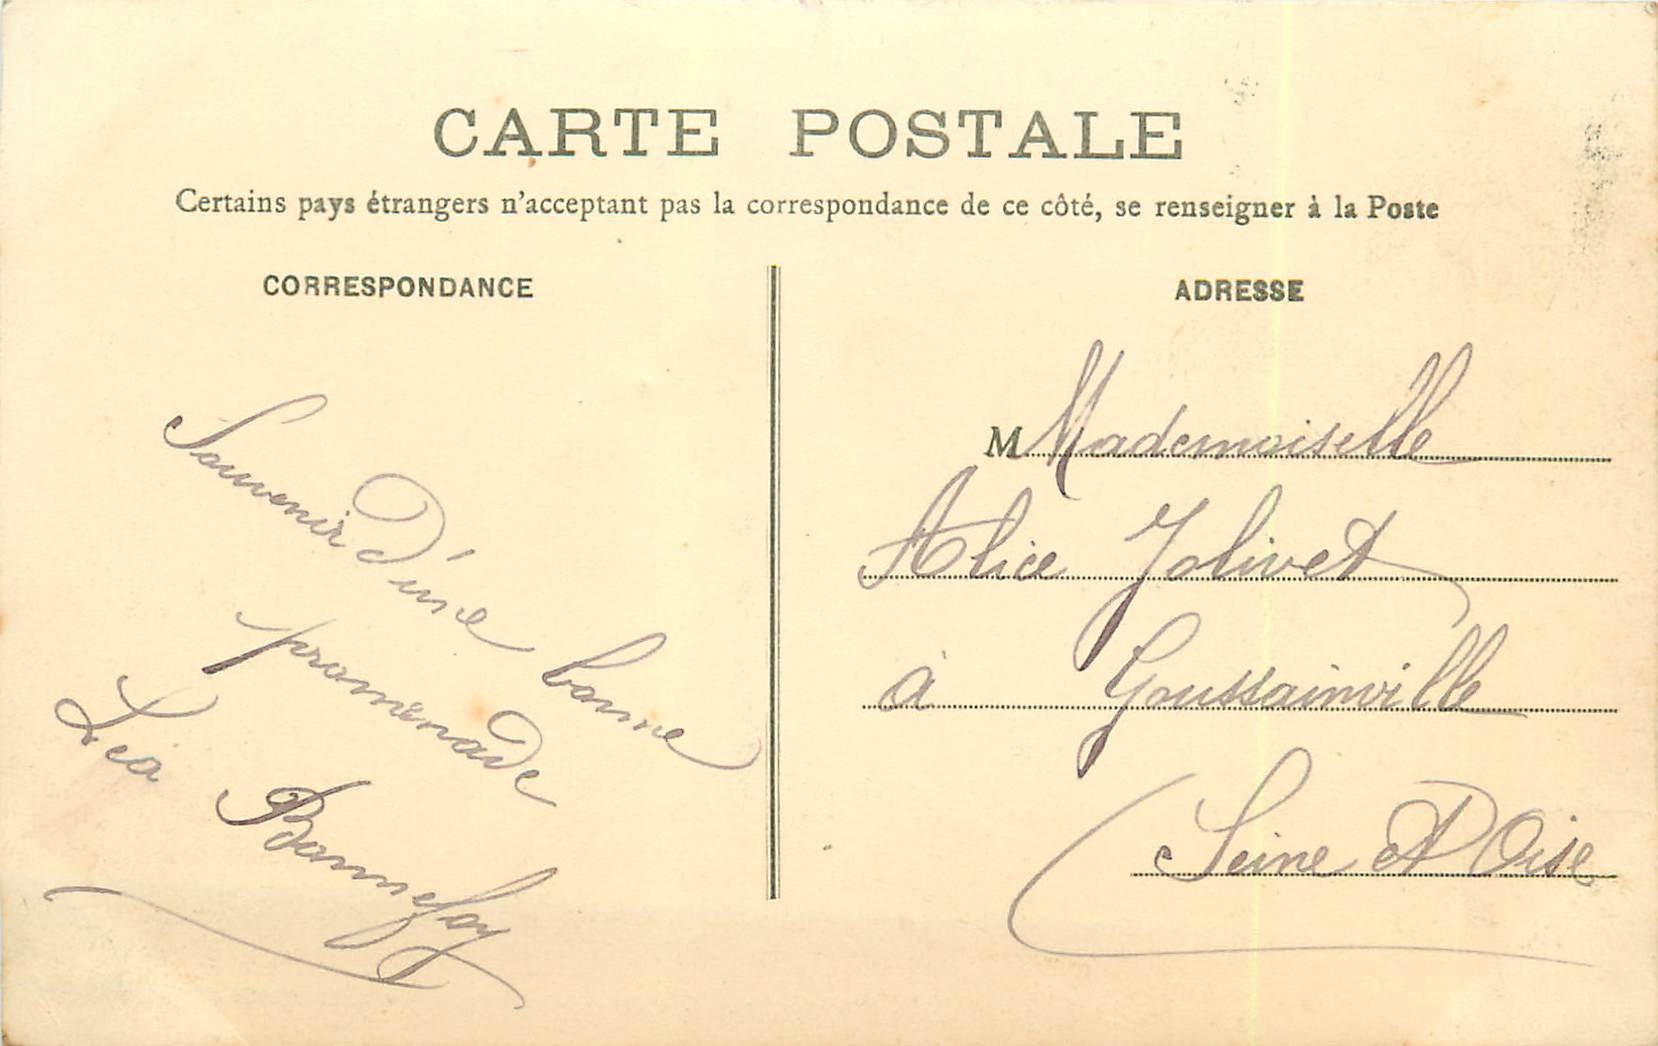 CARTE POSTALE
Certains pays étrangers n'acceptant pas la correspondance de ce côté, se renseigner à la Poste
CORRESPONDANCE
Souvenir d'une bonne
promenade
Léa Bonnefoy
ADRESSE
M Mademoiselle
Alice Jolivet
à Goussainville
Seine et Oise